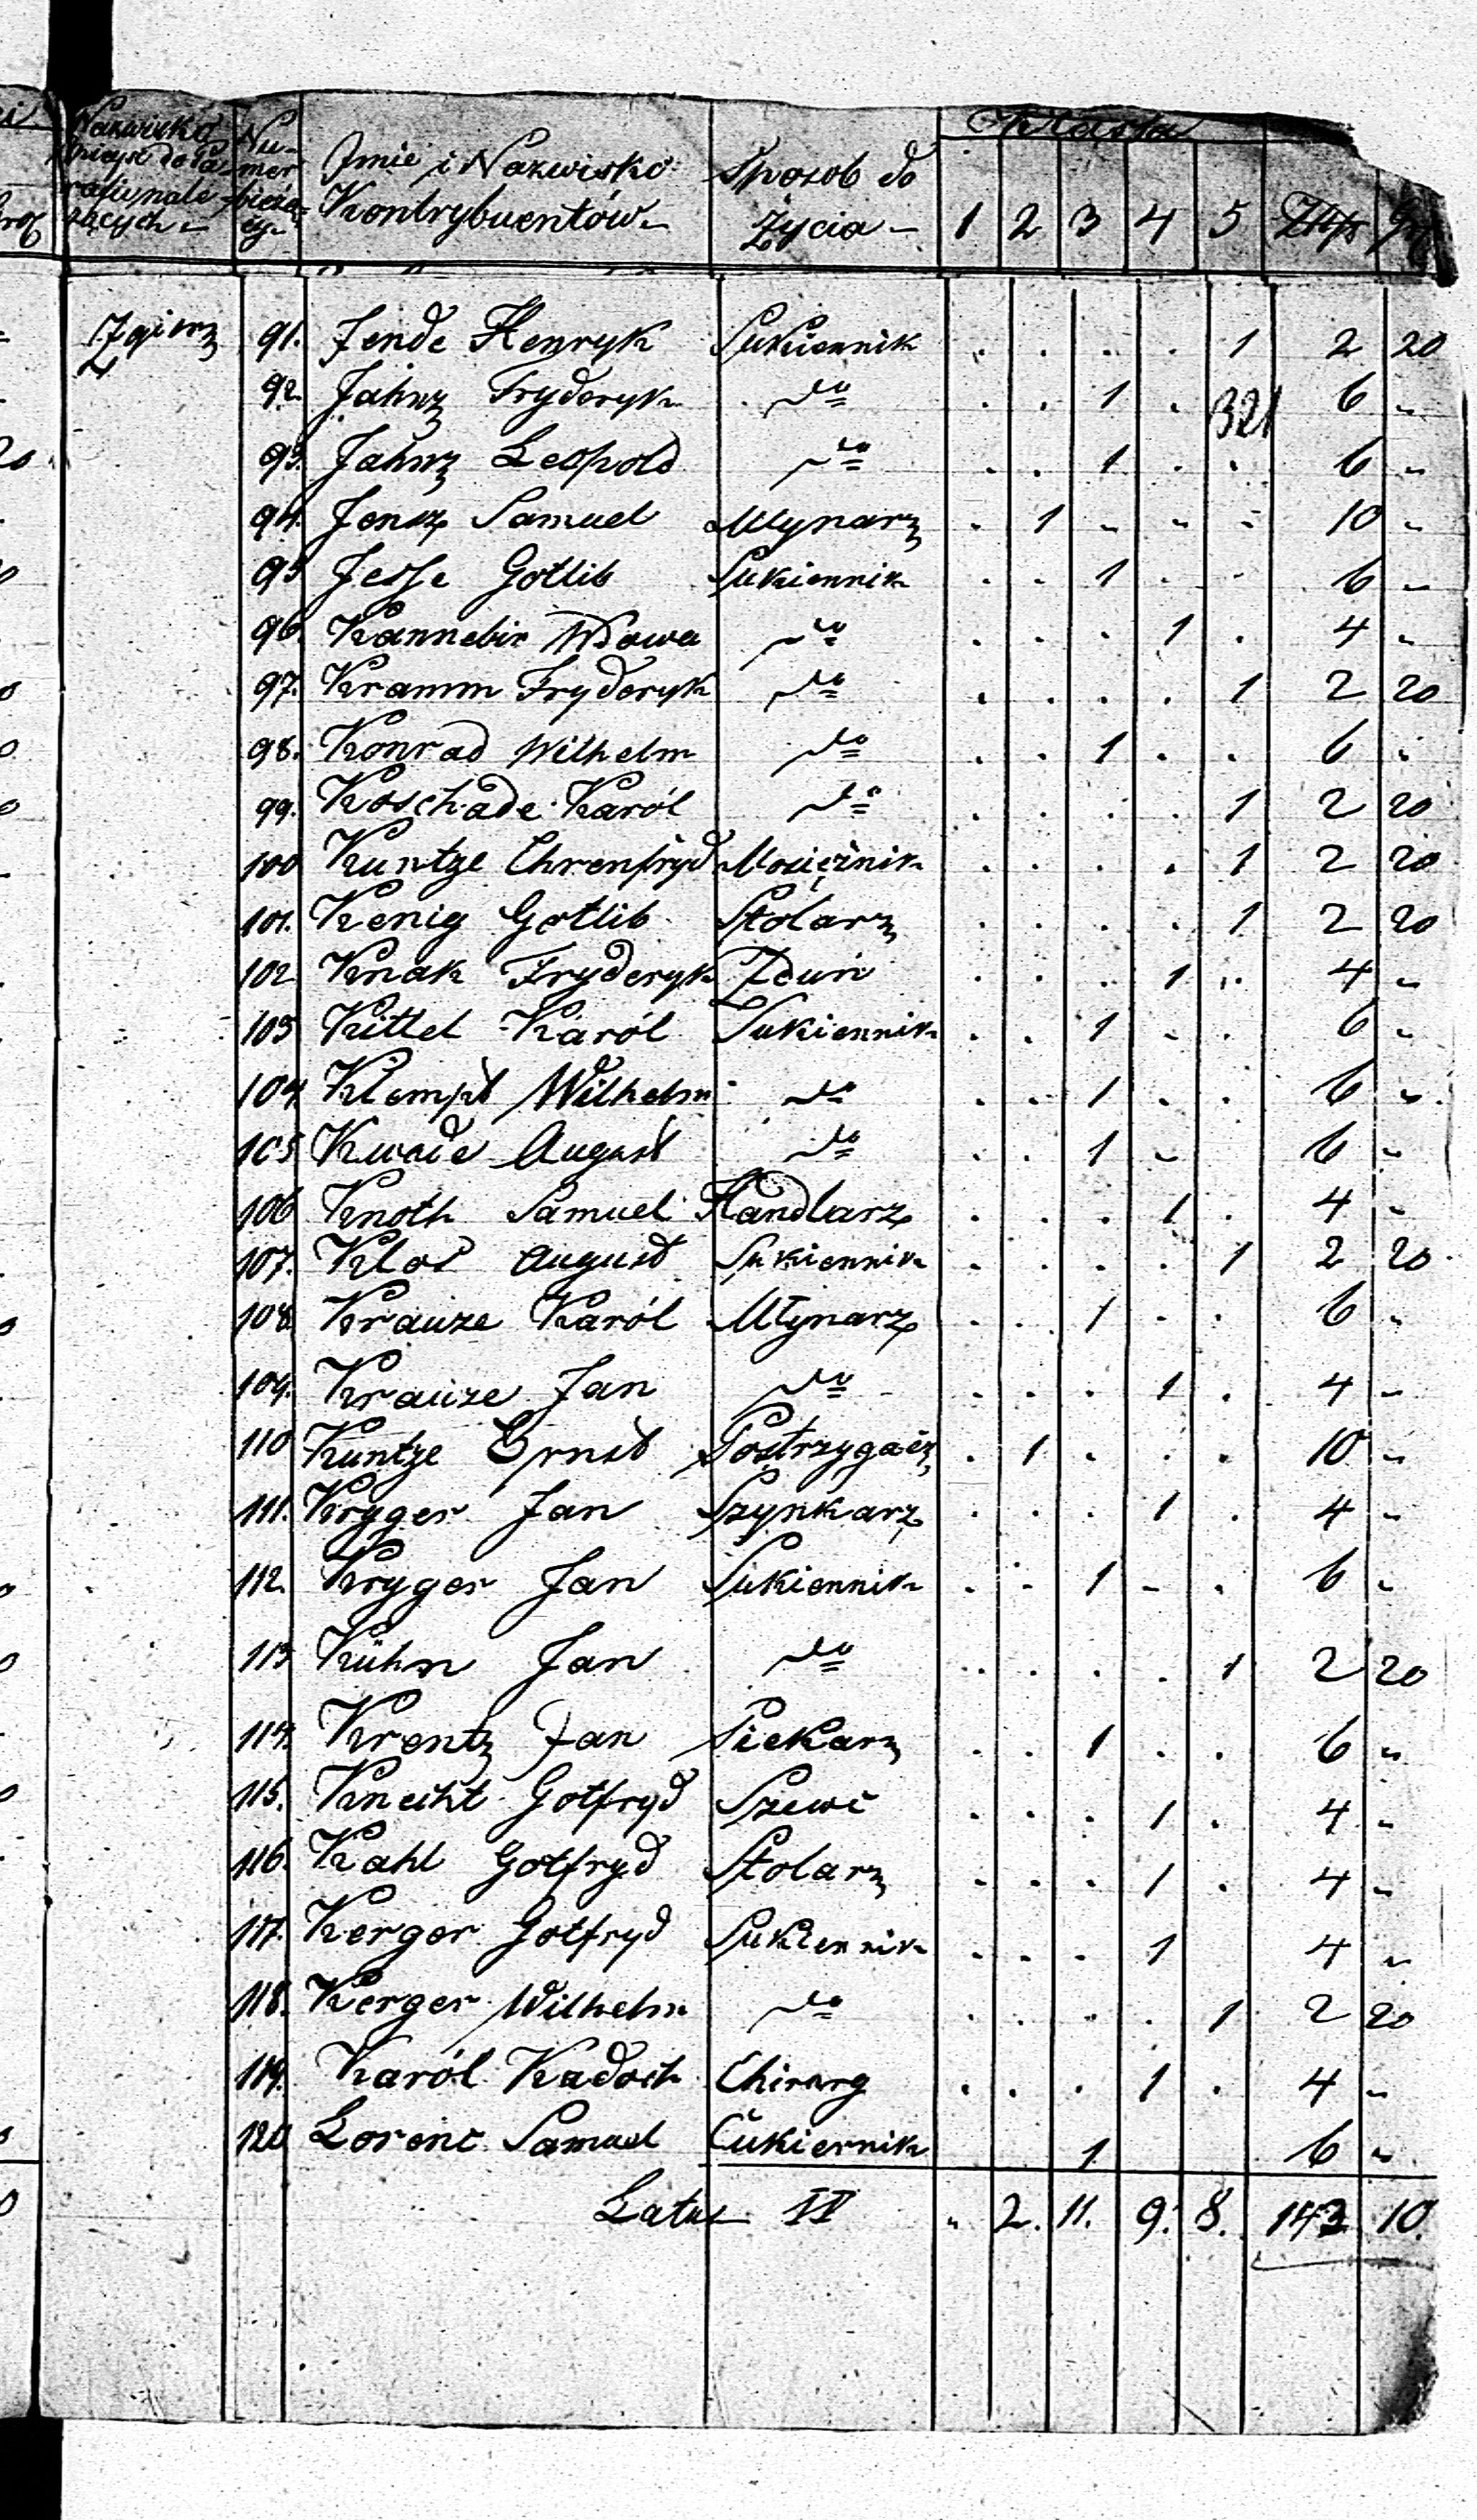 Nazwisko Nu- Klassa
miejsc do Pa- mer Imie i Nazwisko Sposob do
rafii nale- bieżą- Kontrybuentów Życia 1 2 3 4 5 Złp gr
żących cy
Zgierz 91. Jende Henryk Sukiennik . . . . 1 2 20
92. Jahnz Fryderyk do . . 1 . 6 "
321
93. Jahnz Leopold do . . 1 . . 6 "
94. Jensz Samuel Młynarz . 1 " " " 10 "
95 Jesse Gotlib Sukiennik . . 1 . . 6 "
96. Kannebir Wdowa do . . . 1 . 4 "
97. Kramm Fryderyk do . . . . 1 2 20
98. Konrad Wilhelm do . . 1 . . 6 "
99. Koschade Karól do . . . . 1 2 20
100 Kuntze Ehrenfryd Mosiężnik . . . . 1 2 20
101. Kenig Gotlib Stolarz . . . . 1 2 20
102 Knak Fryderyk Zdun . . . 1 . 4 "
103 Kittel Karól Sukiennik . . 1 . . 6 "
104. Klempt Wilhelm do . . 1 . . 6 "
105 Kwade August do . . 1 " 6 "
106 Knoth Samuel Handlarz . . . 1 . 4 "
107. Klos August Sukiennik . . . . 1 2 20
108 Krauze Karól Młynarz . . 1 . . 6 "
109. Krauze Jan do . . . 1 . 4 "
110 Kuntze Ernst Postrzygacz . 1 . . . 10 "
111. Kryger Jan Szynkarz . . . 1 . 4 "
112. Kryger Jan Sukiennik . . 1 . . 6 "
113 Kühn Jan do . . . . 1 2 20
114. Krentz Jan Piekarz . . 1 . . 6 "
115. Knecht Gotfryd Szewc . . . 1 . 4 "
116. Kahl Gotfryd Stolarz . . . 1 . 4 "
117. Kerger Gotfryd Sukiennik . . . 1 4 "
118. Kerger Wilhelm do . . . . 1 2 20
119. Karól Kadoch Chirurg . . . 1 . 4 "
120 Lorenc Samuel Cukiernik 1 6 "
Latus II " 2. 11. 9. 8. 143 10.